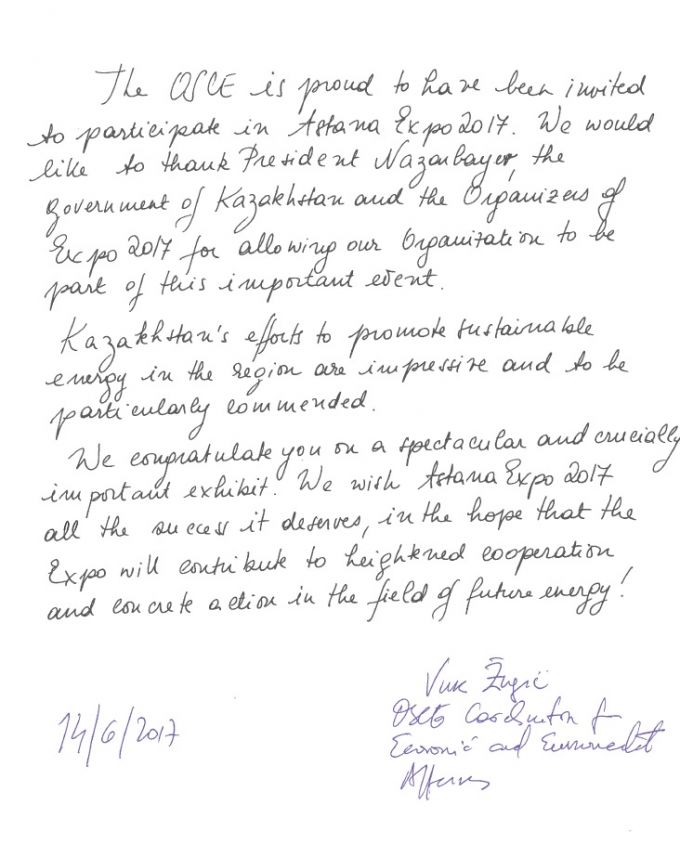 The OSCE is proud to have been invited
to participate in Astana Expo 2017. We would
like to thank President Nazarbayev, the
Government of Kazakhstan and the Organizers of
Expo 2017 for allowing our Organization to be
part of this important event.
Kazakhstan's efforts to promote sustainable
energy in the region are impressive and to be
particularly commended.
We congratulate you on a spectacular and crucially
important exhibit. We wish Astana Expo 2017
all the success it deserves, in the hope that the
Expo will contribute to heightened cooperation
and concrete action in the field of future energy!
Vuk Žugić
14/6/2017
OSCE Coordinator for
Economic and Environmental
Affairs